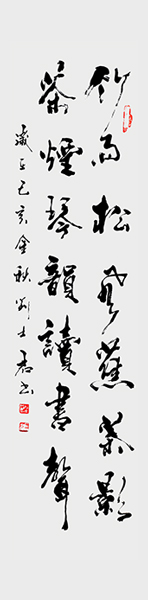 竹雨松風蕉葉影
茶煙琴韻讀書聲
歲在己亥金秋刘士君书